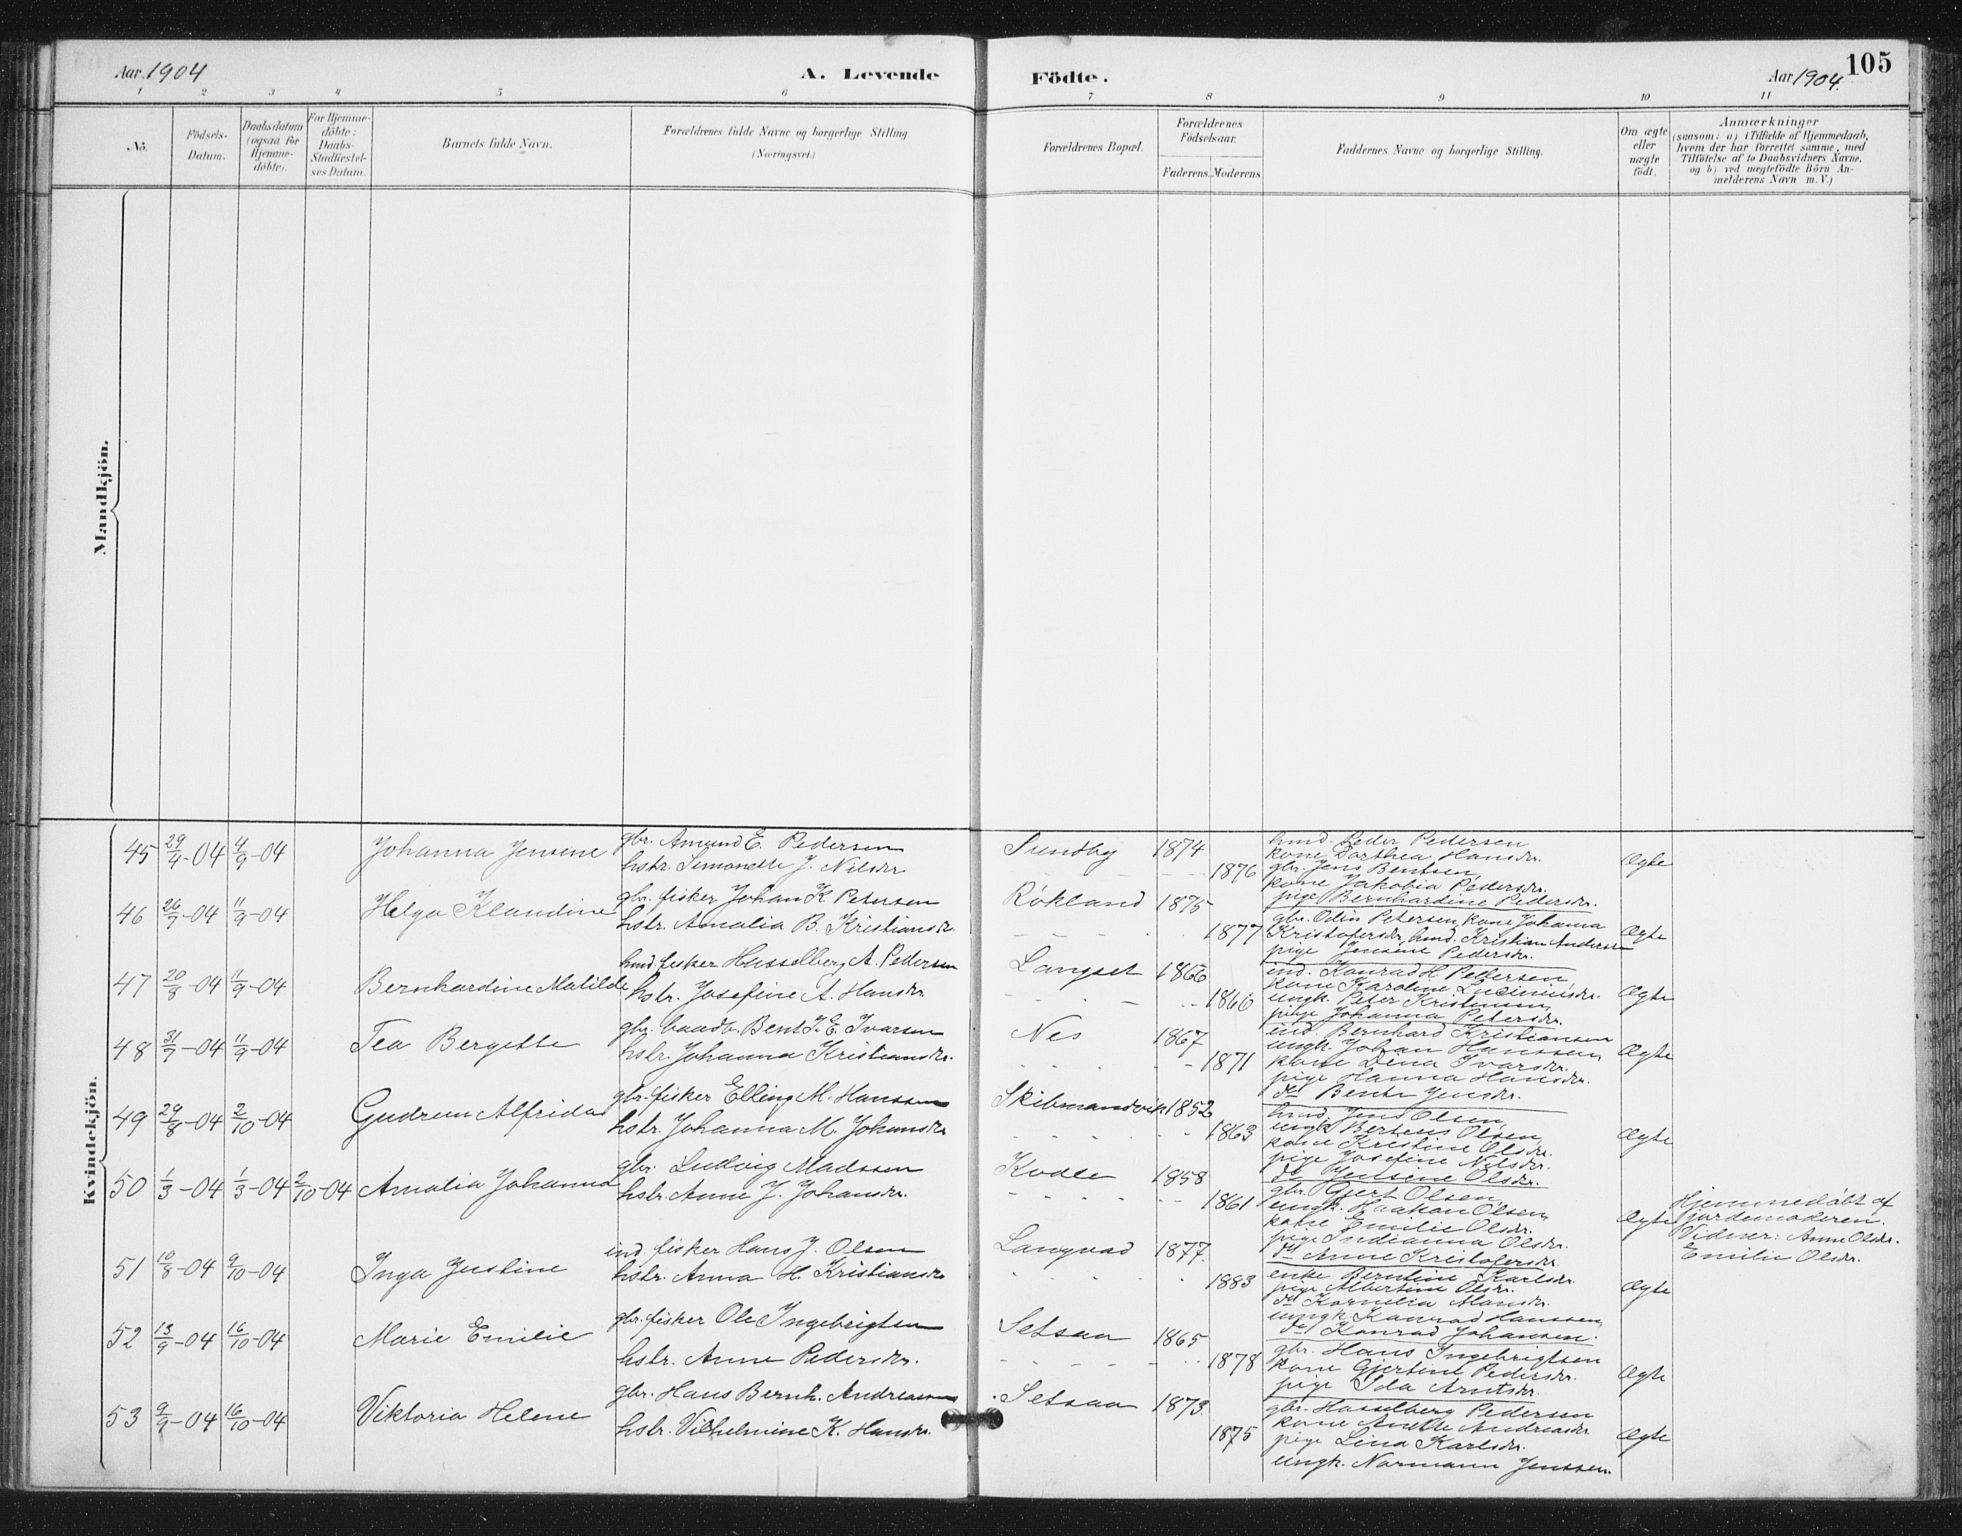 Aar 1904
A. Levende
Födte.
Aar 1904.
105
1 2 3 4 5 6 7 8 9 10 11
No.
Födsels-
Datum.
Daabsdatum
(ogsaa for
Hjemme-
döbte).
For Hjemme-
döbte:
Daabs-
Stadfæstel-
ses Datum.
Barnets fulde Navn.
Forældrenes fulde Navne og borgerlige Stilling
(Næringsvei.)
Forældrenes Bopæl.
Forældrenes
Födselsaar.
Faderens. Moderens
Faddernes Navne og borgerlige Stilling.
Om ægte
eller
uægte
födt.
Anmærkninger
(saasom: a) i Tilfælde af Hjemmedaab,
hvem der har forrettet samme, med
Tilföielse af to Daabsvidners Navne,
og b) ved uægtefödte Börn An-
melderens Navn m. V.)
Mandkjön.
Kvindekjön.
45 29/4-04 4/9-04 Johanna Jensine
gbr. Amund E. Pedersen
hstr. Simonette J. Nilsdr
Sundby 1874
1876
hmd. Peder Pedersen
kone Dorthea Hansdr.
gbr. Jens Bentsen,
kone Jakobia Pedersdr.
pige Bernhardine Pedersdr.
Ægte
46 26/7-04 11/9-04 Helga Klaudine
gbr. fisker Johan K Petersen
hstr. Amalia B. Kristiansdr.
Røkland 1875
1877
gbr. Odin Petersen, kone Johanna
Kristofersdr, hmd. Kristian Andersen
pige Jensine Pedersdr.
Ægte
47 20/8-04 11/9-04 Bernhardine Matilde
hmd fisker Hasselberg A. Pedersen
hstr. Josefine A. Hansdr
Langset 1866
1866
ind. Konrad H Pettersen,
kone Karoline
ungk. Peter Kristensen
pige Johanna Petersdr.
Ægte
48 31/7-04 11/9-04 Tea Bergette
gbr. baadb. Bent J. E. Ivarsen
hstr. Johanna Kristiansdr.
Nes 1867
1871
ind. Bernhard Kristiansen
ungk. Johan Hanssen,
kone Lena Ivarsdr.
pige Hanna Hansdr.
do Bente Jensdr.
Ægte
49 29/8-04 2/10-04 Gudrun Alfrida
gbr. fisker Elling M. Hanssen
hstr. Johanna M. Johansdr
Skibmandvik 1852
1863
hmd. Jens Olsen,
ungk Berteus Olsen
kone Kristine Olsdr.
pige Josefine Nilsdr.
do Jensine Olsdr.
Ægte
50 1/3-04 1/3-04 2/10-04 Amalia Johanna
gbr. Ludvig Madssen
hstr. Anne J. Johansdr.
Kodee 1858
1861
gbr. Gjert Olsen,
ungk. Haakon Olsen,
kone Emilie Olsdr.
pige Indianna Olsdr.
do Anne Kristofersdr.
Ægte
Hjemmedøbt af
jordemoderen.
Vidner: Anne Olsdr.
Emilie Olsdr.
51 10/8-04 9/10-04 Inga Justine
ind. fisker Hans J. Olsen
hstr. Anna H. Kristiansdr
Langvad 1877.
1883
enke Berntine Karlsdr
pige Albertine Olsdr.
do Kornelia Monsdr.
ungk Konrad Hanssen,
do Konrad Johansen.
Ægte
52 13/9-04 16/10-04 Marie Emilie
gbr. fisker Ole Ingebrigtsen
hstr. Anne Pedersdr.
Setsaa 1865
1878
gbr. Hans Ingebrigtsen
kone Gjertine Pedersdr.
pige Ida Arntsdr.
Ægte
53 9/9-04 16/10-04 Viktoria Helene
gbr. Hans Bernh. Andreassen
hstr. Vilhelmine K. Hansdr.
Setsaa 1873
1875
gbr. Hasselberg Pedersen
kone Anette Andreasdr
pige Lina Karlsdr.
ungk. Normann Jenssen.
Ægte